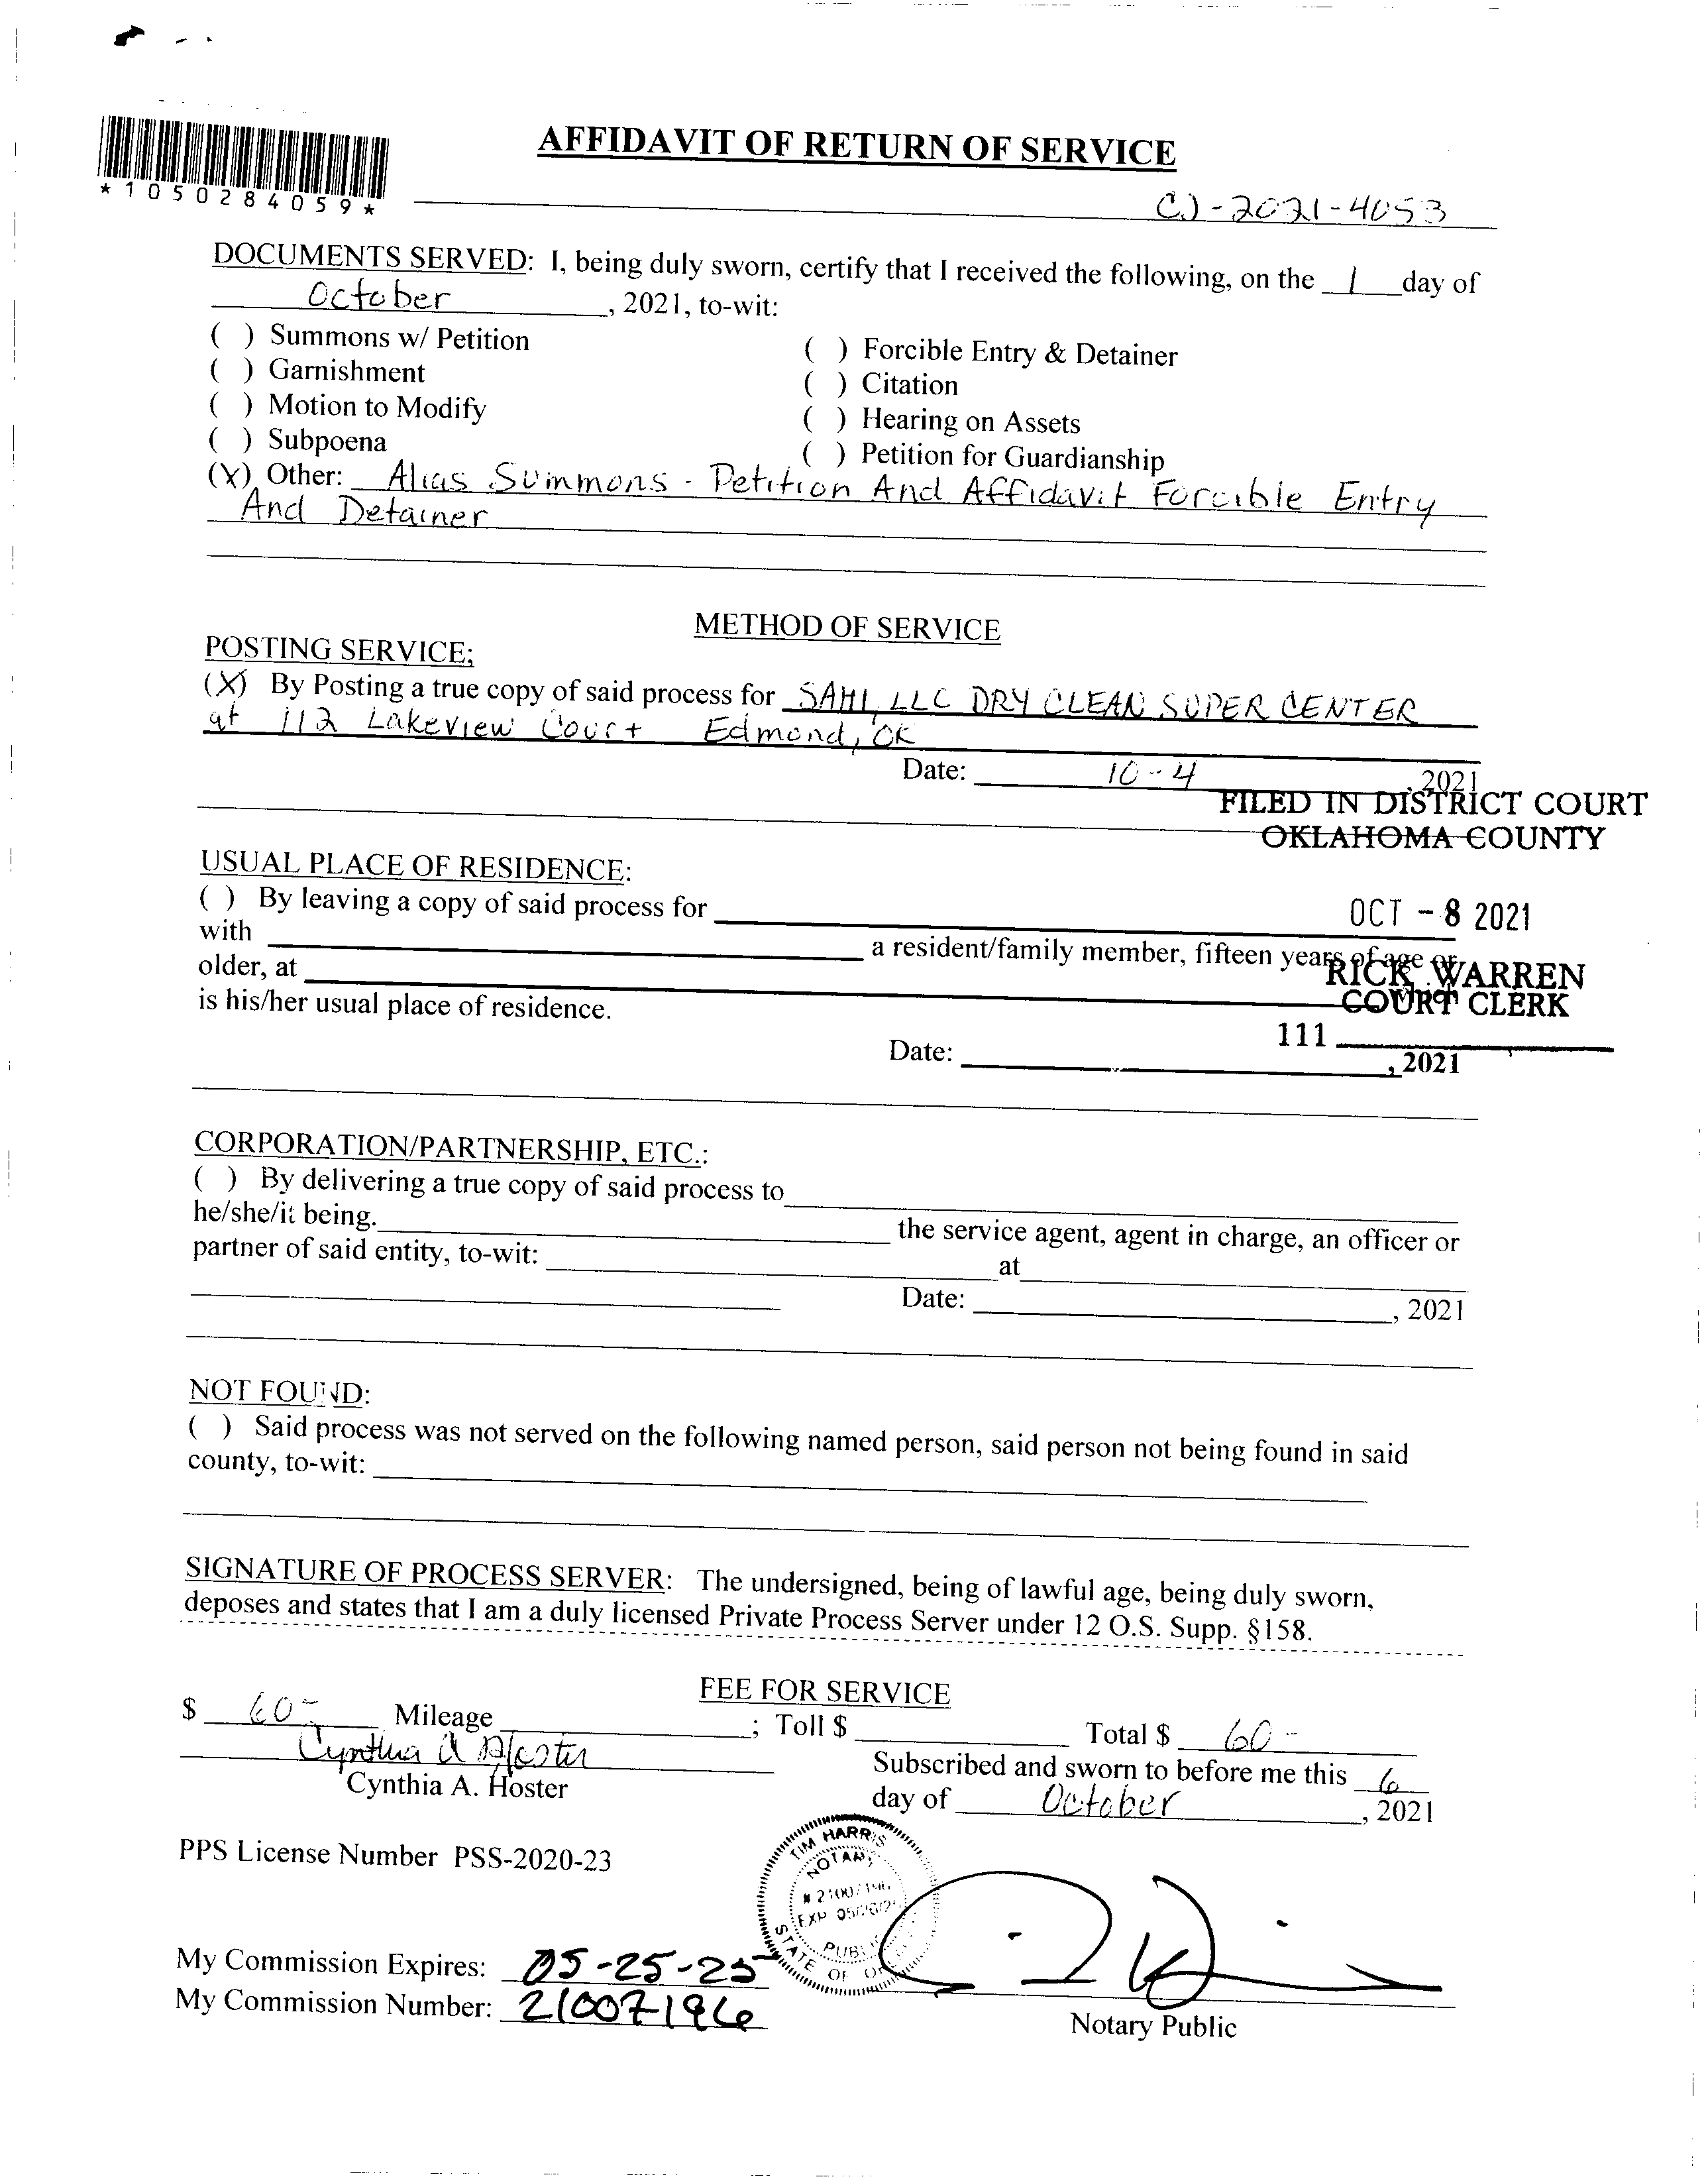 AFFIDAVIT OF RETURN OF SERVICE
*1050284059*
CJ-2021-4053
DOCUMENTS SERVED: I, being duly sworn, certify that I received the following, on the 1 day of
October, 2021, to-wit:
( ) Summons w/ Petition
( ) Garnishment
( ) Motion to Modify
( ) Subpoena
( ) Forcible Entry & Detainer
( ) Citation
( ) Hearing on Assets
( ) Petition for Guardianship
(X) Other: Alias Summons - Petition And Affidavit Forcible Entry
And Detainer
METHOD OF SERVICE
POSTING SERVICE;
(X) By Posting a true copy of said process for SAHI, LLC DRY CLEAN SUPER CENTER
at 112 Lakeview Court Edmond, OK
Date: 10-4, 2021
FILED IN DISTRICT COURT
OKLAHOMA COUNTY
USUAL PLACE OF RESIDENCE:
( ) By leaving a copy of said process for
OCT - 8 2021
with a resident/family member, fifteen years of age or
RICK WARREN
older, at which
COURT CLERK
is his/her usual place of residence.
111
Date: , 2021
CORPORATION/PARTNERSHIP, ETC.:
( ) By delivering a true copy of said process to
he/she/it being. the service agent, agent in charge, an officer or
partner of said entity, to-wit: at
Date: , 2021
NOT FOUND:
( ) Said process was not served on the following named person, said person not being found in said
county, to-wit:
SIGNATURE OF PROCESS SERVER: The undersigned, being of lawful age, being duly sworn,
deposes and states that I am a duly licensed Private Process Server under 12 O.S. Supp. §158.
FEE FOR SERVICE
$ 60- Mileage ; Toll $ Total $ 60-
Cynthia A Hoster
Cynthia A. Hoster
Subscribed and sworn to before me this 6
day of October, 2021
PPS License Number PSS-2020-23
TIM HARRIS
NOTARY
PUBLIC
STATE OF
My Commission Expires: 05-25-25
My Commission Number: 21007196
Notary Public